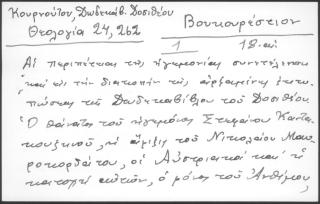 Κουρνούτου, Δωδεκάβ. Δοσιθέου
Θεολογία 24, 262
Βουκουρέστιον
1 18. αἰ
Αἱ περιπέτειαι τῆς ἡγεμονίας συνετέλεσαν
καὶ εἰς τὴν διακοπὴν τῆς ἀρξαμένης ἐκτυ-
πώσεως τῆς Δωδεκαβίβλου τοῦ Δοσιθέου.
Ὁ θάνατος τοῦ ἡγεμόνος Στεφάνου Καντα-
κουζηνοῦ, ἡ ἄφιξις τοῦ Νικολάου Μαυ-
ροκορδάτου, οἱ Αὐστριακοὶ καὶ ἡ
κατοχὴ αὐτῶν, ὁ μόνος τοῦ Ἀνθίμου,